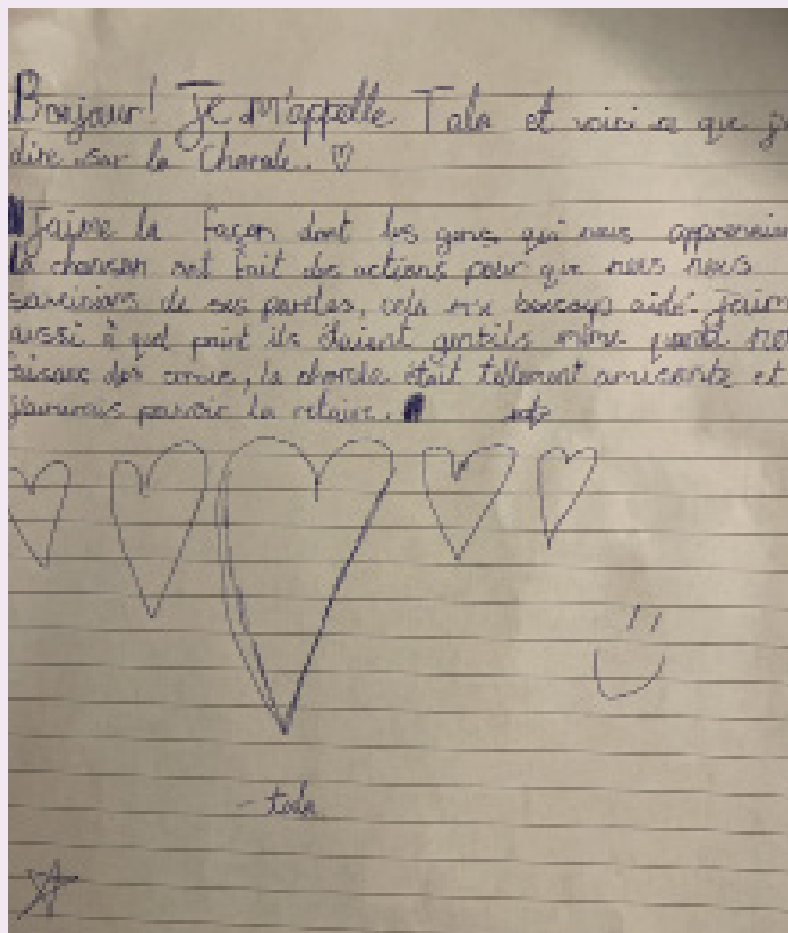 Bonjour! Je m'appelle Tala et voici ce que j
dire sur la Chorale. ♡
J'aime la façon dont les gens qui nous apprenaien
la chanson ont fait des actions pour que nous nous
souvenions de ses paroles, cela beaucoup aidé. J'aim
aussi à quel point ils étaient gentils même quand no
faisons des la chorale était tellement amusante et
pouvoir la refaire.
- tala